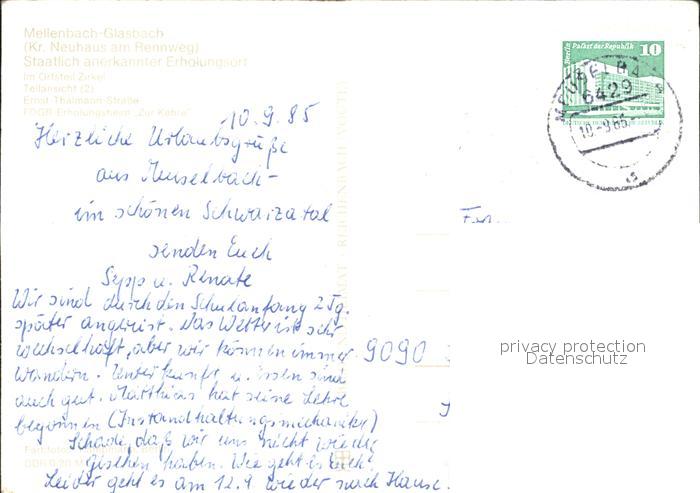 Mellenbach-Glasbach
(Kr. Neuhaus am Rennweg)
Staatlich anerkannter Erholungsort
Im Ortsteil Zirkel
Teilansicht (2)
Ernst-Thälmann-Straße
FDGB-Erholungsheim „Zur Kehre“
10.9.85
Herzliche Urlaubsgrüße
aus Meuselbach-
im schönen Schwarzatal
senden Euch
Sepp u. Renate
Wir sind durch den Schulanfang 2 Tg.
später angereist. Das Wetter ist sehr
wechselhaft, aber wir können immer
wandern. Unterkunft u. Essen sind
auch gut. Matthias hat seine Lehre
begonnen (Instandhaltungsmechaniker)
Schade, daß wir uns nicht wieder
gesehen haben. Wie geht es Euch?
Leider geht es am 12.9. wieder nach Hause.
Berlin Palast der Republik
10
DDR
6429
10.-9.85
Fam.
9090
privacy protection
Datenschutz